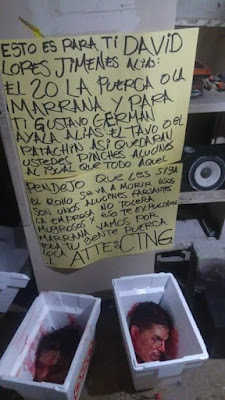 ESTO ES PARA TI DAVID
LORES JIMENES ALIAS:
EL 20 LA PUERCA O LA
MARRANA Y PARA
TI GUSTAVO GERMAN
AYALA ALIAS EL TAVO O EL
PATACHIN ASI QUEDARAN
USTEDES PINCHES ALUCINES
AL IGUAL QUE TODO AQUEL
PENDEJO QUE LES SIGA
EL ROLLO SE VA A MORIR ESOS
SON UNOS ALUCINES FARSANTES
LA EMPRESA NO TOLERA
MUGROSOS ESO TE
MARRANA VAMOS POR
TODA TU GENTE PUERCA
LOCA ATTE: CTNG